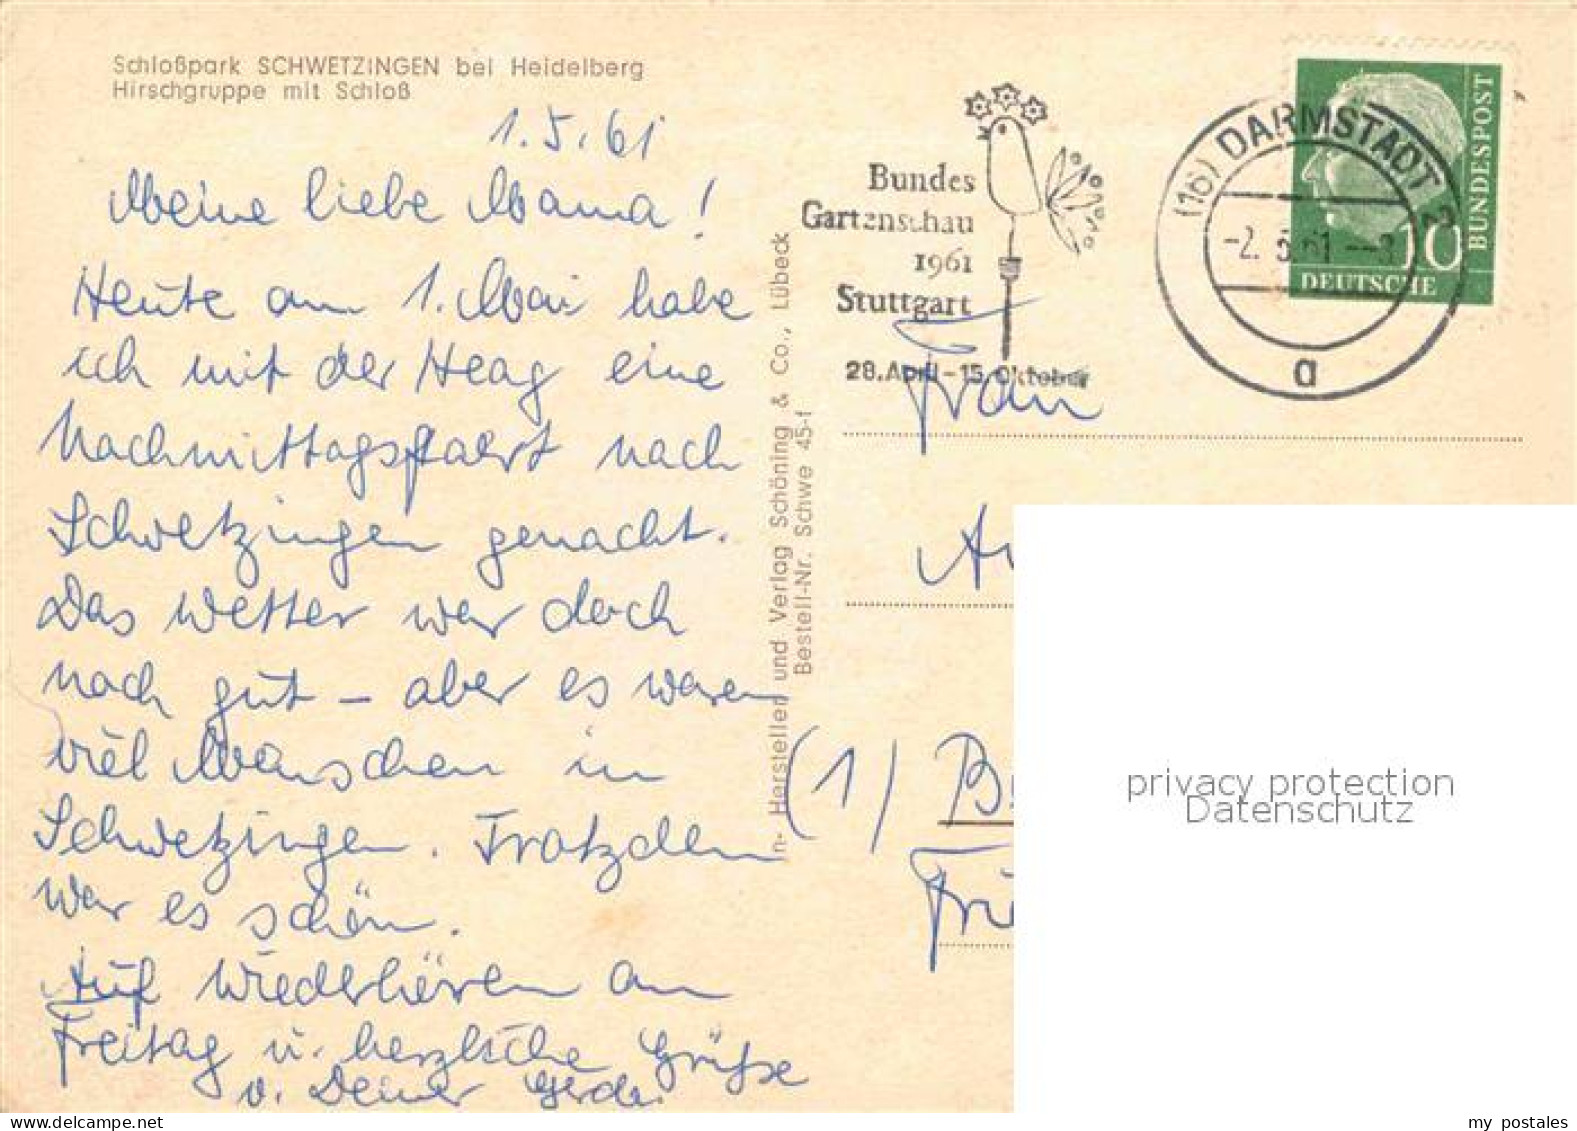 Schloßpark SCHWETZINGEN bei Heidelberg
Hirschgruppe mit Schloß
1.5.61
Meine liebe Mama!
Heute am 1. Mai habe
ich mit der Heag eine
Nachmittagsfahrt nach
Schwetzingen gemacht.
Das Wetter war doch
noch gut – aber es waren
viel Menschen in
Schwetzingen. Trotzdem
war es schön.
Auf Wiederhören am
Freitag u. herzliche Grüße
v. Deiner Gerda.
n- Hersteller und Verlag Schöning & Co., Lübeck
Bestell-Nr. Schwe 45-f
Bundes
Gartenschau
1961
Stuttgart
28. April - 15. Oktober
(16) DARMSTADT 2
-2. 5. 61 - -8
a
BUNDESPOST
10
DEUTSCHE
Frau
(1)
privacy protection
Datenschutz
my postales